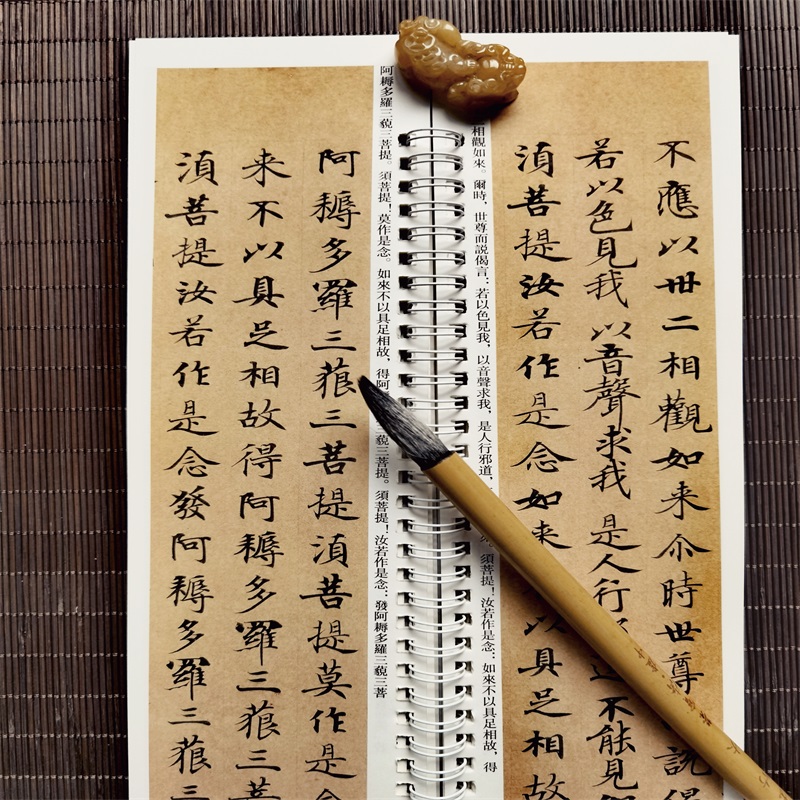 不應以卅二相觀如来尒時世尊說
若以色見我以音聲求我是人行道不能見
湏菩提汝若作是念如来以具足相故
相觀如來。爾時，世尊而説偈言：若以色見我，以音聲求我，是人行邪道，須菩提！汝若作是念：如來不以具足相故，得
阿耨多羅三藐三菩提。須菩提！莫作是念。如來不以具足相故，得阿藐三菩提。須菩提！汝若作是念：發阿耨多羅三藐三菩
阿耨多羅三藐三菩提湏菩提莫作是念
来不以具足相故得阿耨多羅三藐三菩
湏菩提汝若作是念發阿耨多羅三藐三